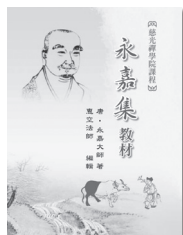 慈光禪學院課程
永嘉集教材
唐・永嘉大師 著
惠空法師 編輯